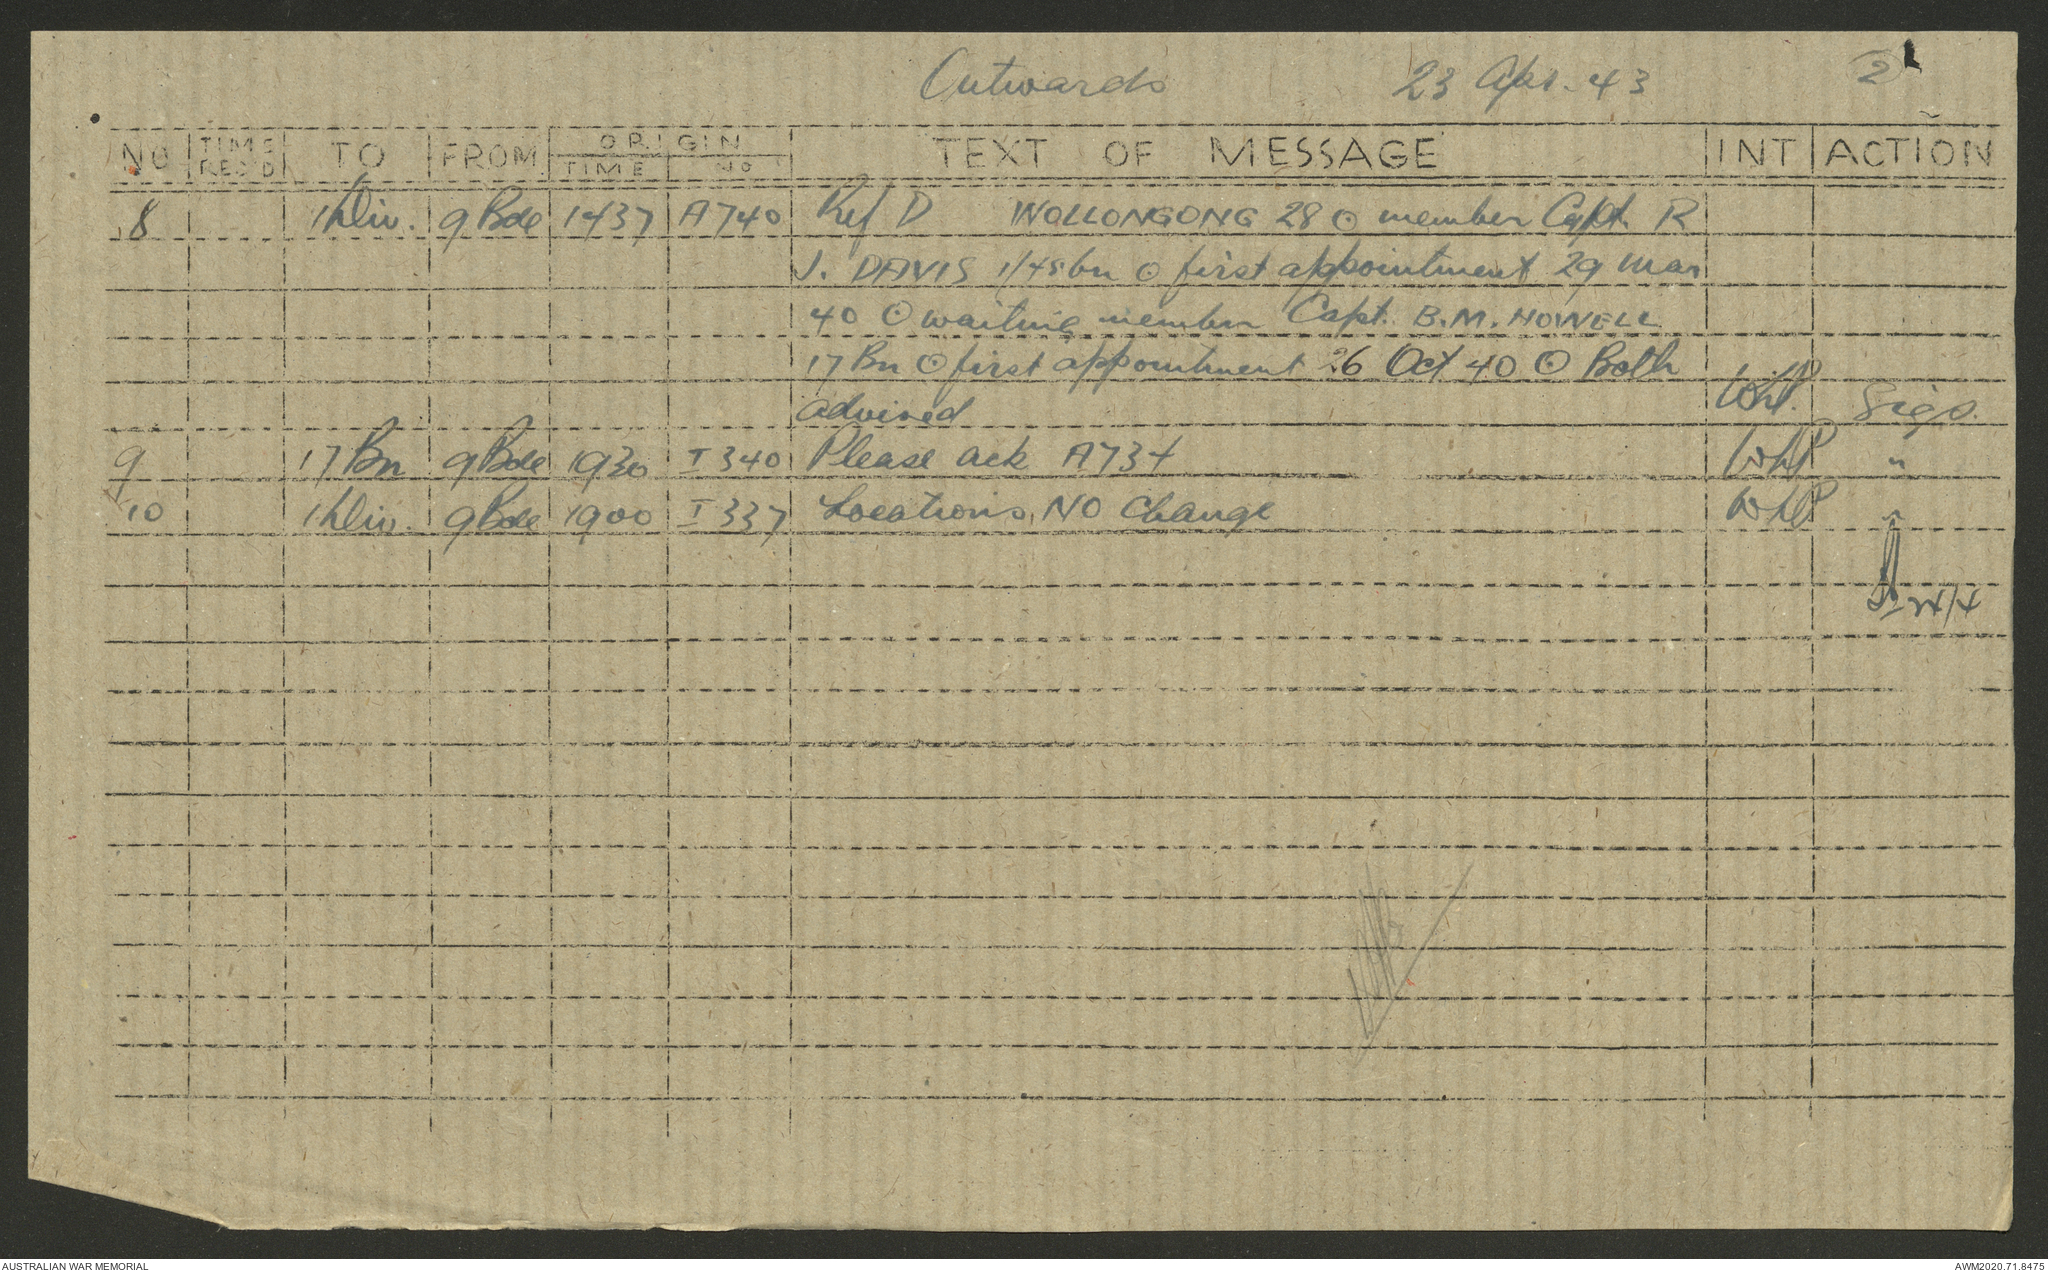 Outwards 23 Apr. 43 2
NO TIME REC'D TO FROM ORIGIN TIME NO TEXT OF MESSAGE INT ACTION
8 1 Div. 9 Bde 1437 A740 Ref D WOLLONGONG 28 ⊙ member Capt. R
J. DAVIS 1/45 bn ⊙ first appointment 29 Mar
40 ⊙ waiting member Capt. B.M. HOWELL
17 Bn ⊙ first appointment 26 Oct 40 ⊙ Both
advised WHP. Sigs.
9 17 Bn 9 Bde 1930 I 340 Please ack A734 WHP "
10 1 Div. 9 Bde 1900 I 337 Locations NO Change WHP "
24/4
AUSTRALIAN WAR MEMORIAL AWM2020.71.8475